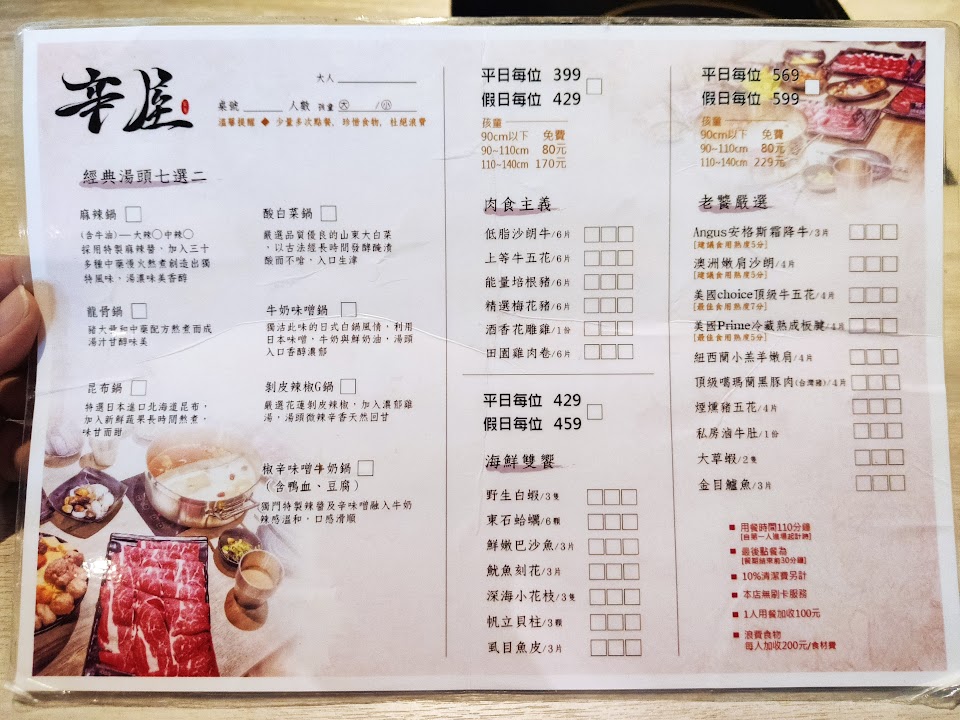 辛屋
大人
桌號 人數 孩童 大 /小
溫馨提醒 ◆ 少量多次點餐，珍惜食物，杜絕浪費
經典湯頭七選二
麻辣鍋
(含牛油)—大辣 中辣
採用特製麻辣醬，加入三十
多種中藥慢火熬煮創造出獨
特風味，湯濃味美香醇
龍骨鍋
豬大骨和中藥配方熬煮而成
湯汁甘醇味美
昆布鍋
特選日本進口北海道昆布，
加入新鮮蔬果長時間熬煮，
味甘而甜
酸白菜鍋
嚴選品質優良的山東大白菜
，以古法經長時間發酵醃漬
酸而不嗆，入口生津
牛奶味噌鍋
獨沽此味的日式白鍋風情，利用
日本味噌，牛奶與鮮奶油，湯頭
入口香醇濃郁
剝皮辣椒G鍋
嚴選花蓮剝皮辣椒，加入濃郁雞
湯，湯頭微辣辛香天然回甘
椒辛味噌牛奶鍋
（含鴨血、豆腐）
獨門特製辣醬及辛味噌融入牛奶
辣感溫和，口感滑順
平日每位 399
假日每位 429
孩童
90cm以下 免費
90~110cm 80元
110~140cm 170元
肉食主義
低脂沙朗牛/6片
上等牛五花/6片
能量培根豬/6片
精選梅花豬/6片
酒香花雕雞/1份
田園雞肉卷/6片
平日每位 429
假日每位 459
海鮮雙饗
野生白蝦/3隻
東石蛤蠣/6顆
鮮嫩巴沙魚/3片
魷魚刻花/3片
深海小花枝/3隻
帆立貝柱/3顆
虱目魚皮/3片
平日每位 569
假日每位 599
孩童
90cm以下 免費
90~110cm 80元
110~140cm 229元
老饕嚴選
Angus安格斯霜降牛/3片
[建議食用熟度5分]
澳洲嫩肩沙朗/4片
[建議食用熟度5分]
美國choice頂級牛五花/4片
[最佳食用熟度7分]
美國Prime冷藏熟成板腱/4片
[最佳食用熟度5分]
紐西蘭小羔羊嫩肩/4片
頂級噶瑪蘭黑豚肉(台灣豬)/4片
煙燻豬五花/4片
私房滷牛肚/1份
大草蝦/2隻
金目鱸魚/3片
■ 用餐時間110分鐘
[自第一人進場起計時]
■ 最後點餐為
[餐期結束前30分鐘]
■ 10%清潔費另計
■ 本店無刷卡服務
■ 1人用餐加收100元
■ 浪費食物
每人加收200元/食材費